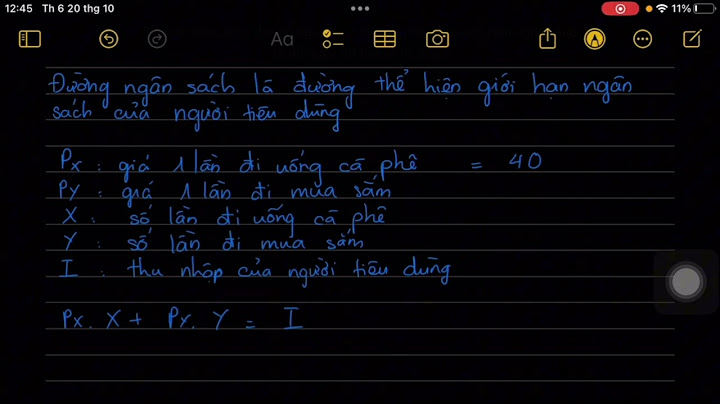 12:45 Th 6 20 thg 10
11%
Aa
Đường ngân sách là đường thể hiện giới hạn ngân
sách của người tiêu dùng
Px : giá 1 lần đi uống cà phê = 40
PY : giá 1 lần đi mua sắm
X : số lần đi uống cà phê
Y : số lần đi mua sắm
I : thu nhập của người tiêu dùng
Px. X + PY. Y = I